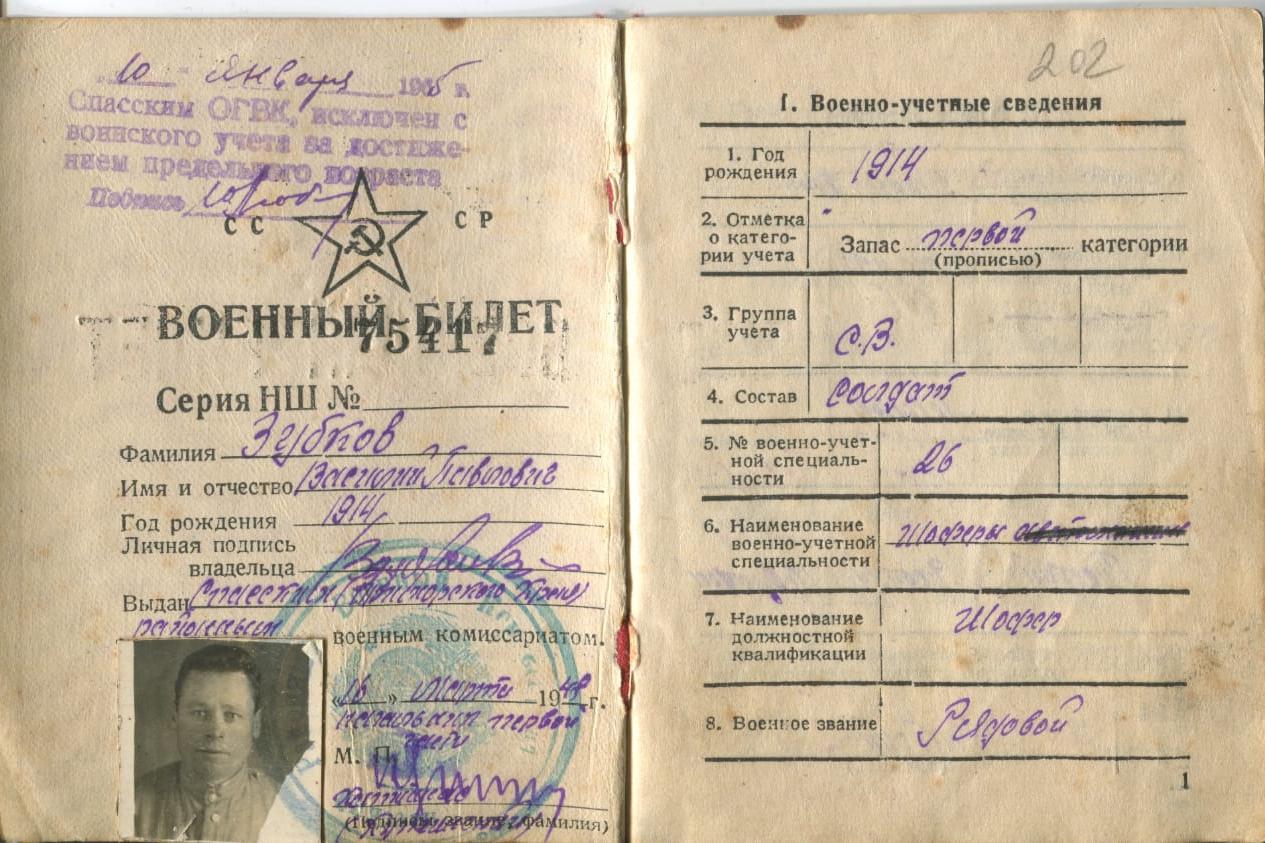 10 " января 1965 г.
Спасским ОГВК, исключен с
воинского учета за достиже-
нием предельного возраста
Подпись
СС СР
ВОЕННЫЙ БИЛЕТ
75417
Серия НШ №
Фамилия Зубков
Имя и отчество Василий Павлович
Год рождения 1914
Личная подпись
владельца
Выдан Спасским Приморского Края
районным военным комиссариатом.
"16" марта 1948 г.
первой
части
М. П.
(Подпись, звание, фамилия)
202
I. Военно-учетные сведения
1. Год
рождения
1914
2. Отметка
о катего-
рии учета
Запас первой категории
(прописью)
3. Группа
учета
С.В.
4. Состав
Солдат
5. № военно-учет-
ной специаль-
ности
26
6. Наименование
военно-учетной
специальности
Шоферы
7. Наименование
должностной
квалификации
Шофер
8. Военное звание
Рядовой
1